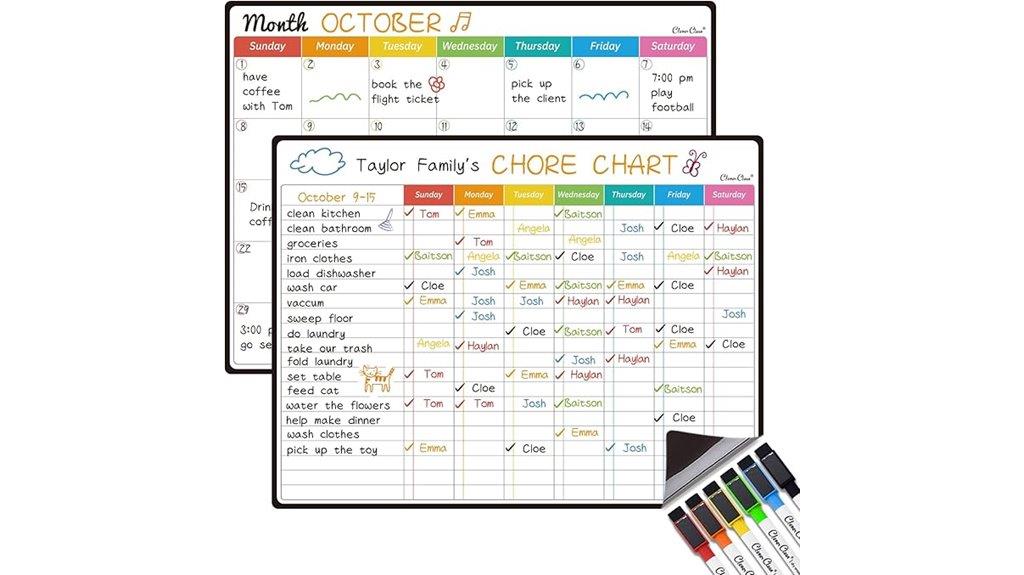 Month OCTOBER CleverClue®
Sunday Monday Tuesday Wednesday Thursday Friday Saturday
1 2 3 4 5 6 7
have coffee with Tom
book the flight ticket
pick up the client
7:00 pm play football
8 9 10 11 12 13 14
15
22
29
3:00
Taylor Family's CHORE CHART
October 9-15 Sunday Monday Tuesday Wednesday Thursday Friday Saturday
clean kitchen ✓ Tom ✓ Emma ✓ Baitson
clean bathroom Angela Josh ✓ Cloe ✓ Haylan
groceries ✓ Tom Angela
iron clothes ✓ Baitson Angela ✓ Baitson ✓ Cloe Josh Angela ✓ Baitson
load dishwasher ✓ Josh ✓ Haylan
wash car ✓ Cloe ✓ Emma ✓ Baitson ✓ Emma ✓ Cloe
vaccum ✓ Emma Josh Josh ✓ Haylan ✓ Haylan
sweep floor ✓ Josh Josh
do laundry ✓ Cloe ✓ Baitson ✓ Tom ✓ Cloe
take our trash Angela ✓ Haylan ✓ Emma ✓ Cloe
fold laundry ✓ Josh ✓ Haylan
set table ✓ Tom ✓ Emma ✓ Haylan
feed cat ✓ Cloe ✓ Baitson
water the flowers ✓ Tom ✓ Tom Josh ✓ Baitson
help make dinner ✓ Cloe
wash clothes ✓ Emma
pick up the toy ✓ Emma ✓ Cloe ✓ Josh